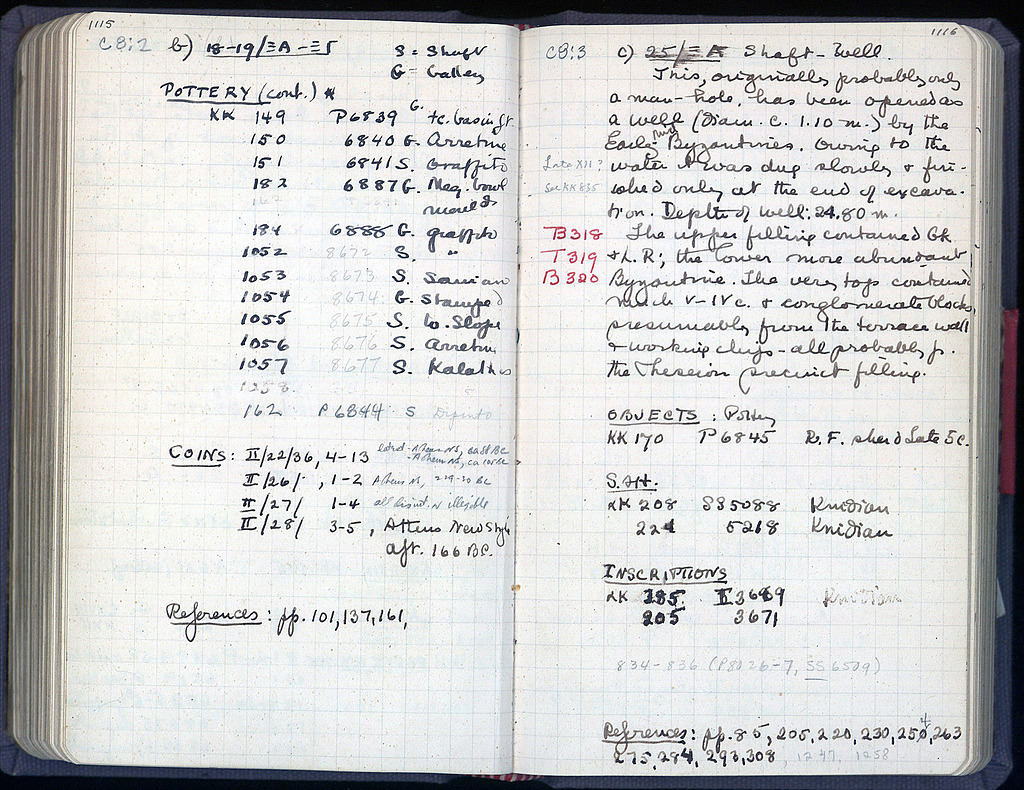 1115
C8:2 b) 18-19/ΞA - ΞΓ S = Shaft
G = Gallery
POTTERY (cont.)
KK 149 P6839 G. tc. basin fr.
150 6840 G. Arretine
151 6841 S. Graffito
182 6887 G. Meg. bowl
mould
184 6888 G. graffito
1052 8672 S. "
1053 8673 S. Samian
1054 8674 G. Stamped
1055 8675 S. W. Slope
1056 8676 S. Arretine
1057 8677 S. Kalathos
1258
162 P 6844 S Dipinto
COINS: II/22/36, 4-13
II/26/ , 1-2 Athens NS,
II/27/ 1-4 all disint. or illegible
II/28/ 3-5, Athens New Style
aft. 166 BC.
References: pp. 101, 137, 161,
1116
C9:3 c) 25/ΞA Shaft-Well.
This, originally probably only
a man-hole, has been opened as
a well (Diam. c. 1.10 m.) by the
Early Mid Byzantines. Owing to the
Late XII? water it was dug slowly & fini-
See KK 835 shed only at the end of excava-
tion. Depth of well: 24.80 m.
B318 The upper filling contained Gk
T319 & L.R; the lower more abundant
B320 Byzantine. The very top contained
much V-IV c. & conglomerate blocks,
presumably from the terrace wall
& working chips - all probably fr.
the Theseion precinct filling.
OBJECTS: Pottery
KK 170 P6845 R.F. sherd Late 5c.
S.H.
KK 208 SS5088 Knidian
224 5218 Knidian
INSCRIPTIONS
KK 185 I 3669 Knidian
205 3671
834-836 (P8026-7, SS 6509)
References: pp. 85, 205, 220, 230, 254, 263
275, 284, 293, 308, 1247, 1258